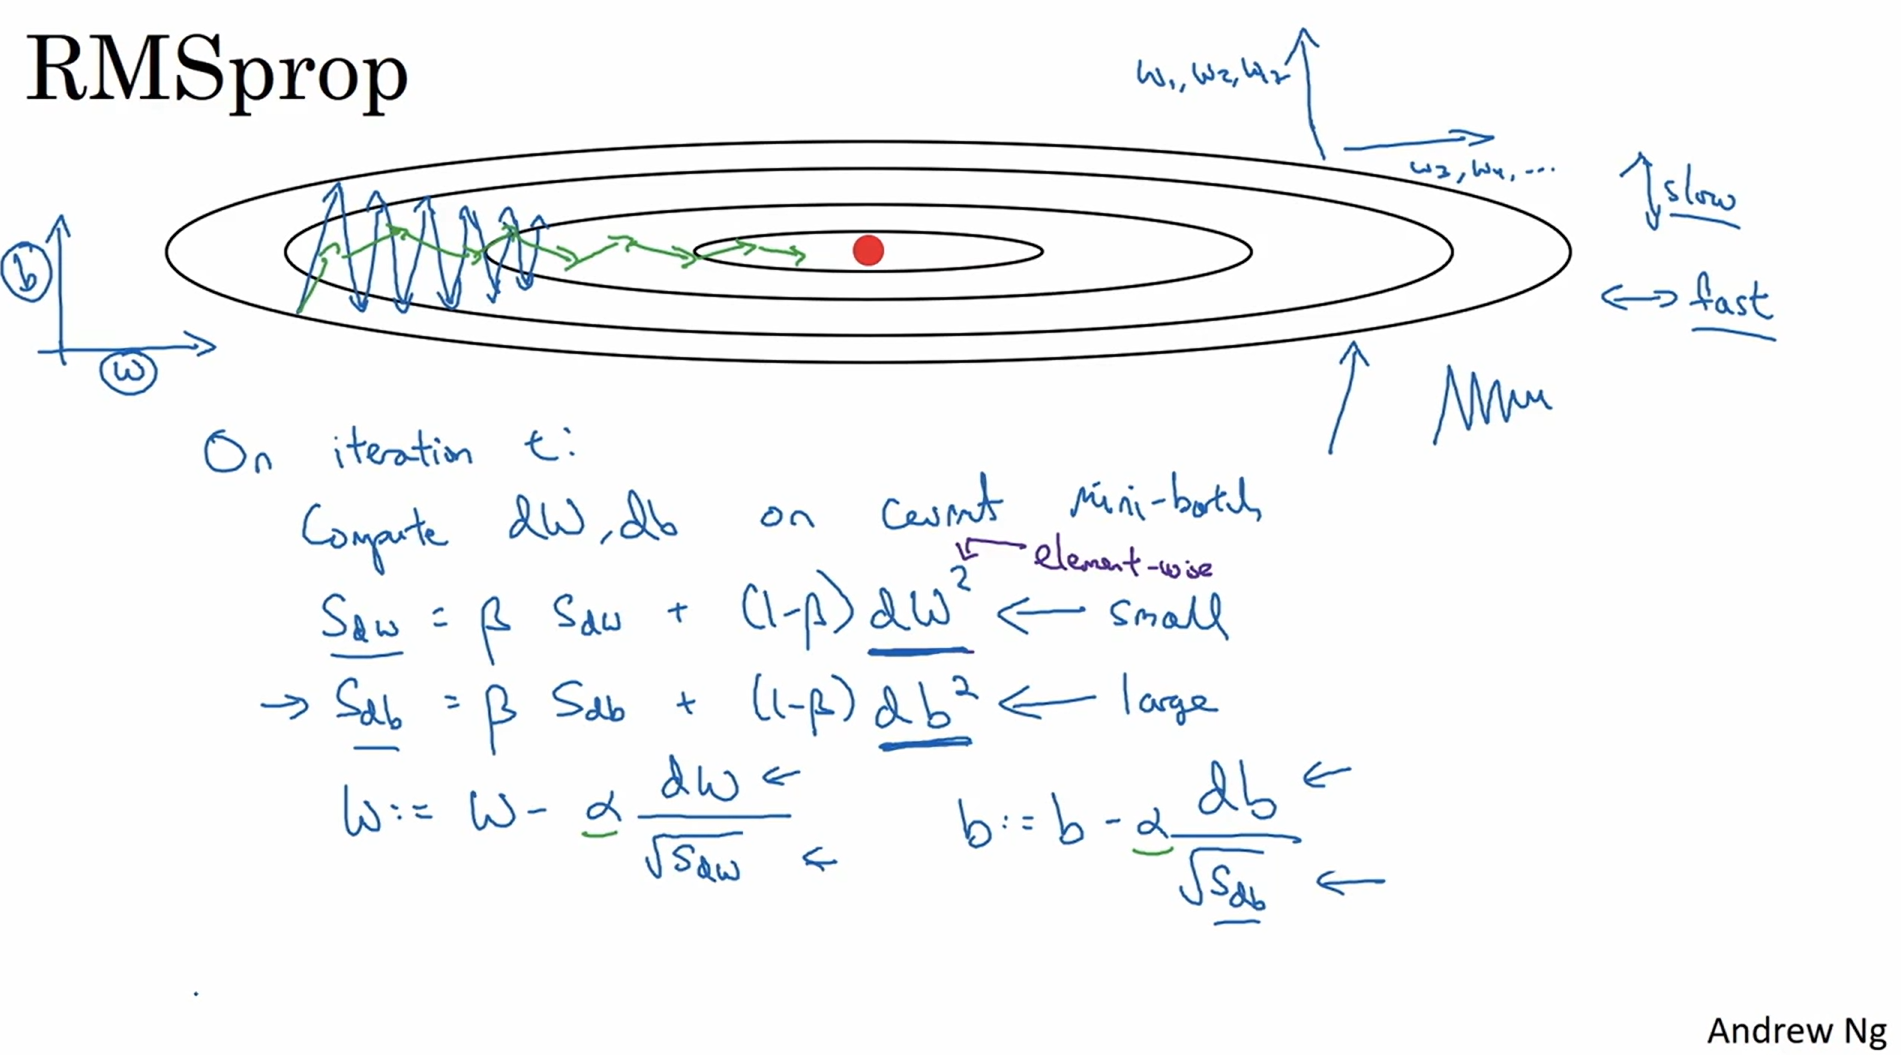 RMSprop
w₁, w₂, w₇
w₃, w₄, ...
slow
fast
b
w
On iteration t:
Compute dW, db on current mini-batch
element-wise
S_dw = β S_dw + (1-β) dW² ← small
→ S_db = β S_db + (1-β) db² ← large
W := W - α dW/√S_dw ←
b := b - α db/√S_db ←
Andrew Ng